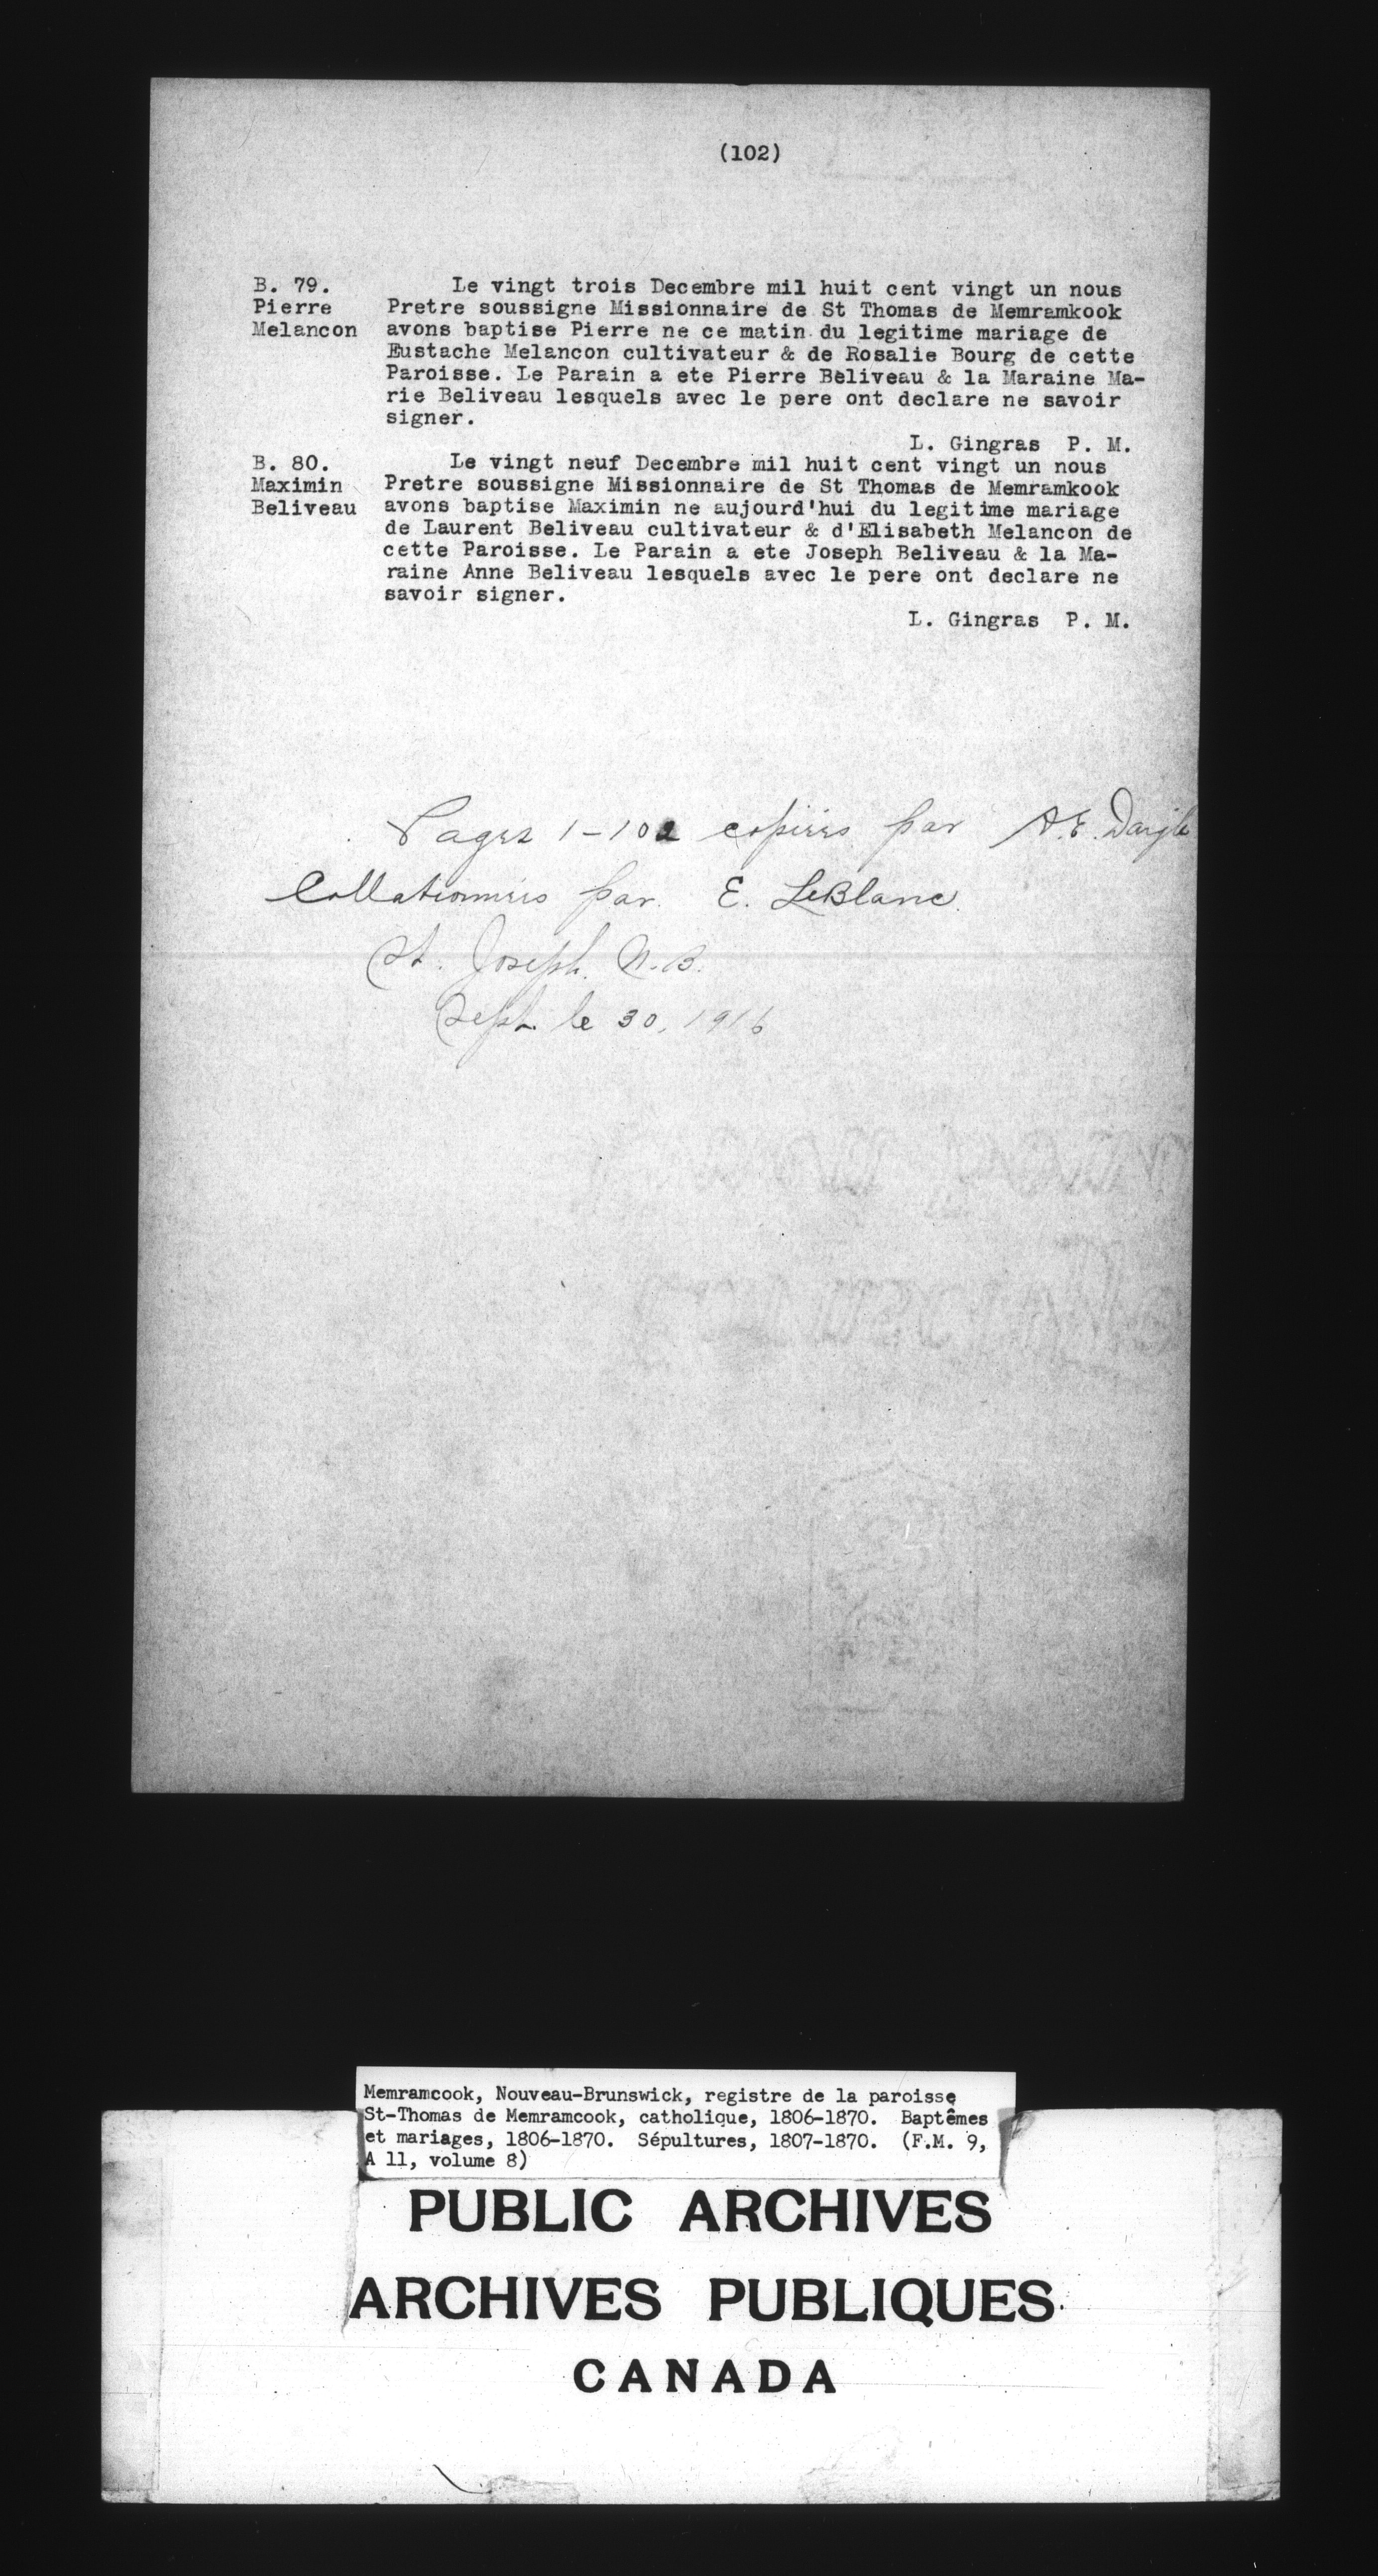 (102)
B. 79.
Pierre
Melancon
Le vingt trois Decembre mil huit cent vingt un nous
Pretre soussigne Missionnaire de St Thomas de Memramkook
avons baptise Pierre ne ce matin du legitime mariage de
Eustache Melancon cultivateur & de Rosalie Bourg de cette
Paroisse. Le Parain a ete Pierre Beliveau & la Maraine Ma-
rie Beliveau lesquels avec le pere ont declare ne savoir
signer.
L. Gingras P. M.
B. 80.
Maximin
Beliveau
Le vingt neuf Decembre mil huit cent vingt un nous
Pretre soussigne Missionnaire de St Thomas de Memramkook
avons baptise Maximin ne aujourd'hui du legitime mariage
de Laurent Beliveau cultivateur & d'Elisabeth Melancon de
cette Paroisse. Le Parain a ete Joseph Beliveau & la Ma-
raine Anne Beliveau lesquels avec le pere ont declare ne
savoir signer.
L. Gingras P. M.
Pages 1-102 copiées par A.E. Daigle
Collationnées par E. LeBlanc.
St. Joseph. N.B.
Sept. le 30, 1916
Memramcook, Nouveau-Brunswick, registre de la paroisse
St-Thomas de Memramcook, catholique, 1806-1870. Baptêmes
et mariages, 1806-1870. Sépultures, 1807-1870. (F.M. 9,
A 11, volume 8)
PUBLIC ARCHIVES
ARCHIVES PUBLIQUES
CANADA